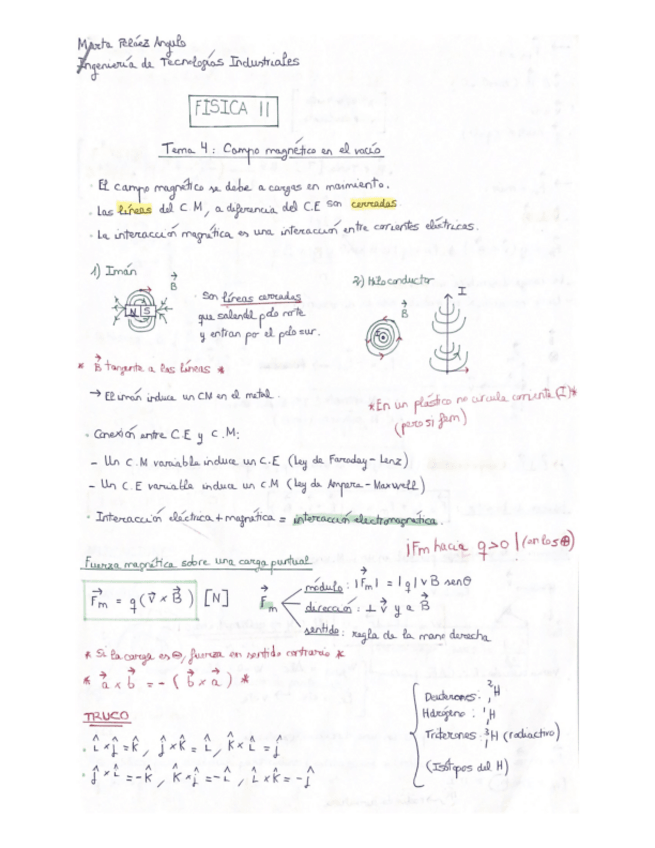 Marta Peláez Angulo
Ingeniería de Tecnologías Industriales
FÍSICA II
Tema 4: Campo magnético en el vacío
· El campo magnético se debe a cargas en movimiento.
· Las líneas del C.M, a diferencia del C.E son cerradas.
· La interacción magnética es una interacción entre corrientes eléctricas.
1) Imán
B⃗
N S
· Son líneas cerradas
que salen del polo norte
y entran por el polo sur.
2) Hilo conductor
B⃗
I
* B⃗ tangente a las líneas *
→ El imán induce un CM en el metal.
*En un plástico no circula corriente (I)*
(pero si fem)
· Conexión entre C.E y C.M:
- Un C.M variable induce un C.E (Ley de Faraday-Lenz)
- Un C.E variable induce un C.M (Ley de Ampere-Maxwell)
· Interacción eléctrica + magnética = interacción electromagnética.
¡Fm hacia q>0 | (en los ⊕)
Fuerza magnética sobre una carga puntual
F⃗m = q(v⃗ × B⃗) [N]
F⃗m
módulo: |F⃗m| = |q| v B senθ
dirección: ⊥ v⃗ y a B⃗
sentido: regla de la mano derecha
* Si la carga es ⊖, fuerza en sentido contrario *
* a⃗ × b⃗ = - (b⃗ × a⃗) *
TRUCO
· î × ĵ = k̂, ĵ × k̂ = î, k̂ × î = ĵ
· ĵ × î = -k̂, k̂ × ĵ = -î, î × k̂ = -ĵ
Deuterones: ²₁H
Hidrógeno: ¹₁H
Triterones: ³₁H (radiactivo)
(Isótopos del H)